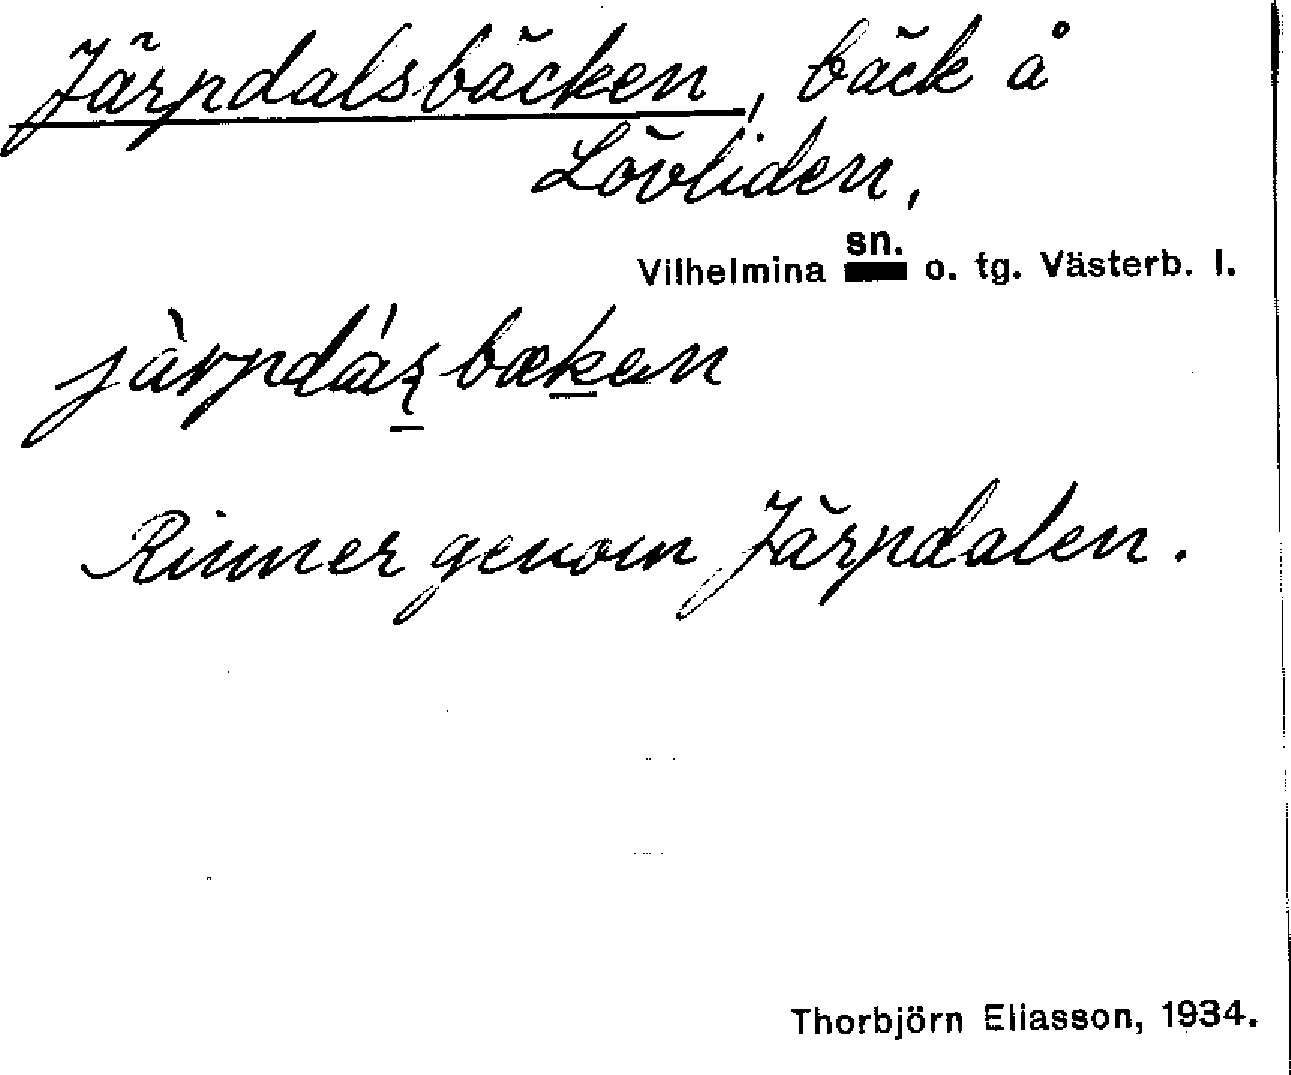 Järpdalsbäcken, bäck å
Lövliden,
Vilhelmina sn. o. tg. Västerb. l.
Rinner genom Järpdalen.
Thorbjörn Eliasson, 1934.